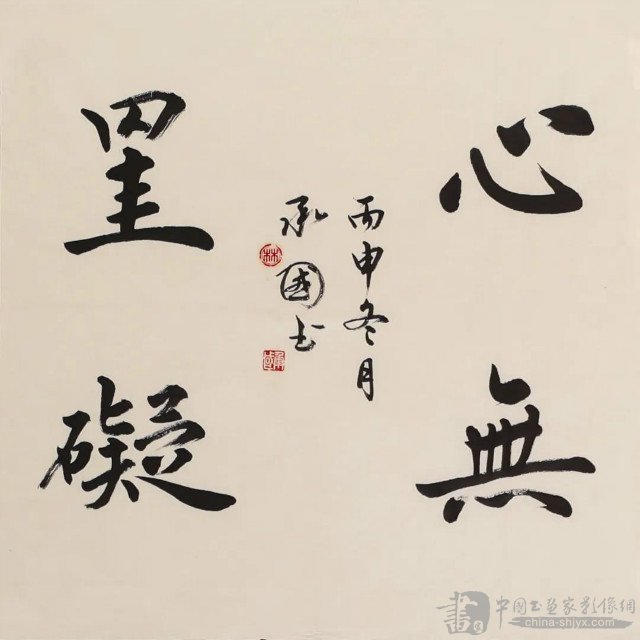 心無
罣礙
丙申冬月
承國书
林
中國书画家影像網
china-shjyx.com